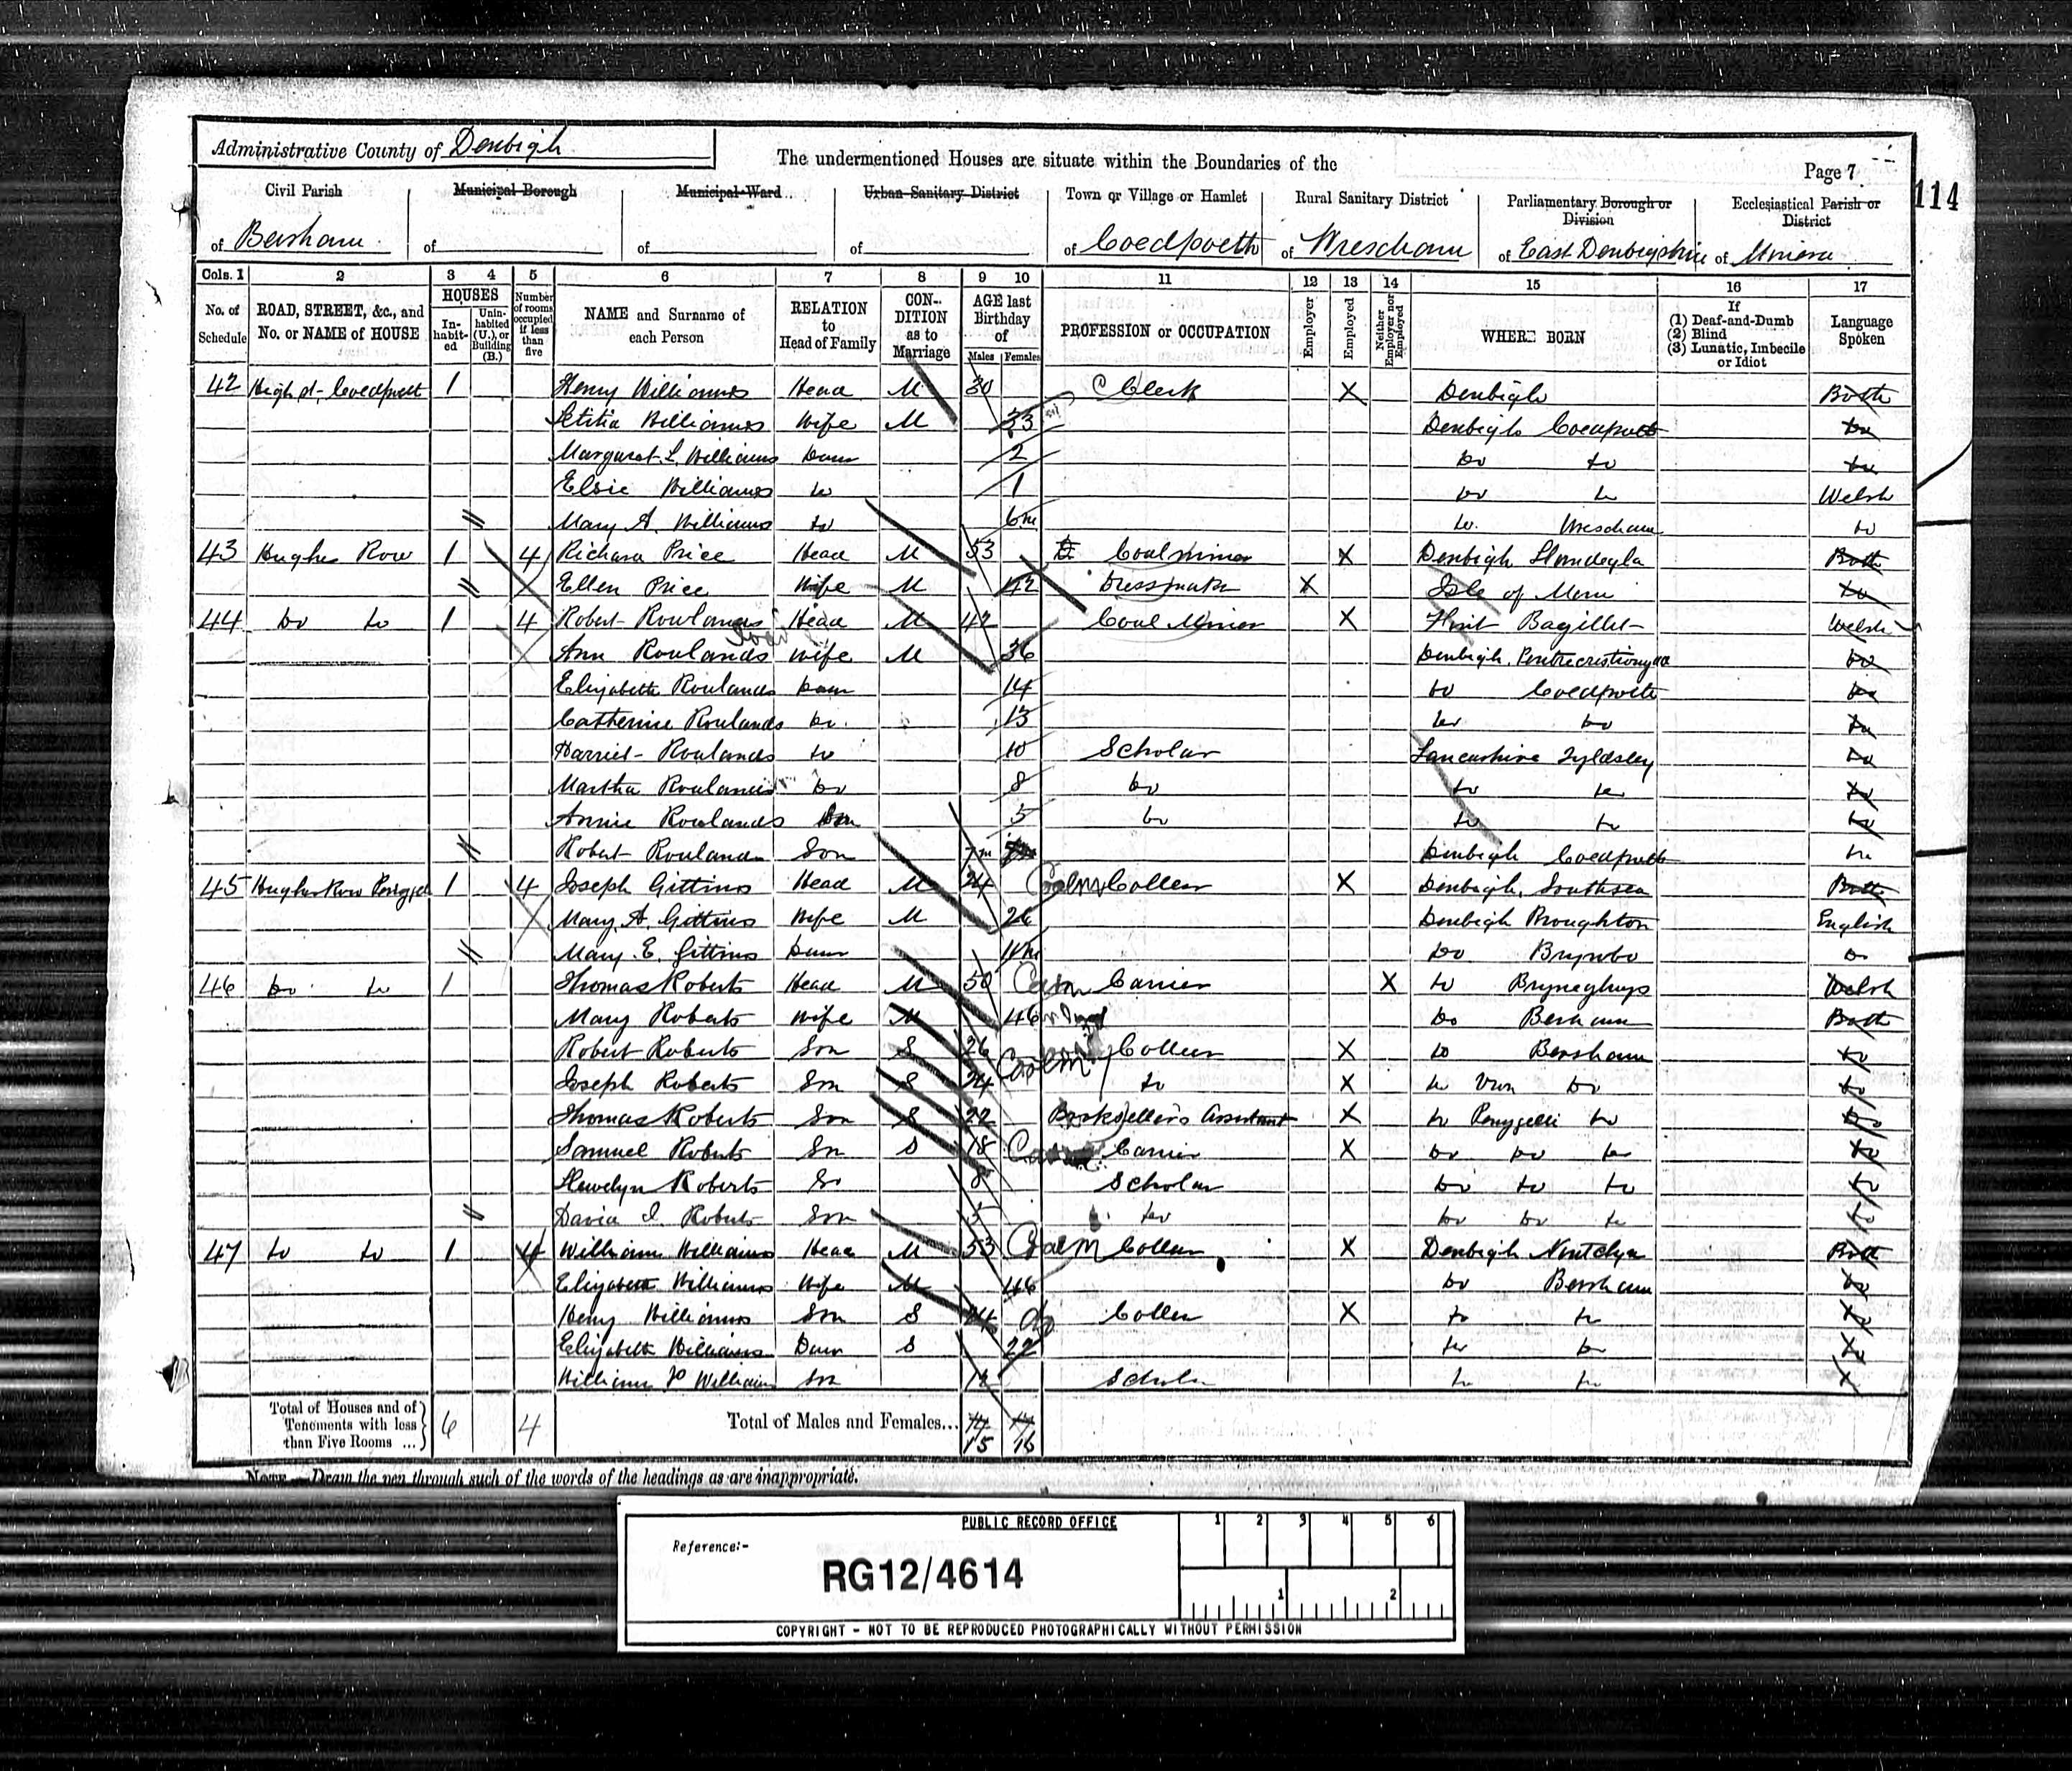 Administrative County of Denbigh
The undermentioned Houses are situate within the Boundaries of the
Page 7
114
Civil Parish
Municipal Borough
Municipal Ward
Urban Sanitary District
Town or Village or Hamlet
Rural Sanitary District
Parliamentary Borough or Division
Ecclesiastical Parish or District
of Bersham
of
of
of
of Coedpoeth
of Wrescham
of East Denbigshire
of Minera
Cols. 1 2 3 4 5 6 7 8 9 10 11 12 13 14 15 16 17
No. of Schedule
ROAD, STREET, &c., and No. or NAME of HOUSE
HOUSES
In-habit-ed
Unin-habited (U.), or Building (B.)
Number of rooms occupied if less than five
NAME and Surname of each Person
RELATION to Head of Family
CON-DITION as to Marriage
AGE last Birthday of
Males Females
PROFESSION or OCCUPATION
Employer
Employed
Neither Employer nor Employed
WHERE BORN
If (1) Deaf-and-Dumb (2) Blind (3) Lunatic, Imbecile or Idiot
Language Spoken
42 High St. Coedpoeth 1 Henry Williams Head M 30 Clerk X Denbigh Both
Letitia Williams Wife M 33 Denbigh Coedpoeth Do
Margaret L. Williams Daur 2 Do do do
Elsie Williams do 1 Do do Welsh
Mary A. Williams do 6m do. Wrescham do
43 Hughes Row 1 4 Richard Price Head M 53 Coal miner X Denbigh Llandegla Both
Ellen Price Wife M 42 Dressmaker X Isle of Man do
44 Do do 1 4 Robert Rowlands Head M 42 Coal Miner X Flint Bagillt Welsh
Ann Rowlands Wife M 36 Denbigh do
Elizabeth Rowlands Daur 14 do Coedpoeth do
Catherine Rowlands Do. 13 do do do
Harriet Rowlands do 10 Scholar Lancashire Tyldsley do
Martha Rowlands do 8 Do do do do
Annie Rowlands 5 Do do do do
Robert Rowlands Son 7m Denbigh Coedpoeth do
45 Hughes Row 1 4 Joseph Gittins Head M 24 Coalm Collier X Denbigh, Southsea Both
Mary A. Gittins Wife M 26 Denbigh Broughton English
Mary E. Gittins Daur 11m Do Brymbo Do
46 Do do 1 Thomas Roberts Head M 50 Carrier X do Welsh
Mary Roberts Wife M 46 Do Bersham Both
Robert Roberts Son S 26 Coalm Collier X do Bersham do
Joseph Roberts Son S 24 do X do Vron do do
Thomas Roberts Son S 22 Booksellers Assistant X do Penygelli do do
Samuel Roberts Son S 18 Carrier X do do do do
Llewelyn Roberts So 8 Scholar Do do do do
David I. Roberts Son 5 do do do do do
47 do do 1 4 William Williams Head M 53 Coalm Collier X Denbigh Both
Elizabeth Williams Wife M 46 Do Bersham do
Henry Williams Son S 24 do Collier X do do do
Elizabeth Williams Daur S 22 do do do
William Williams Son 12 Scholar do do
Total of Houses and of Tenements with less than Five Rooms ... 6 4
Total of Males and Females... 15 16
NOTE.—Draw the pen through such of the words of the headings as are inappropriate.
PUBLIC RECORD OFFICE
1 2 3 4 5 6
Reference:-
RG12/4614
1 2
COPYRIGHT - NOT TO BE REPRODUCED PHOTOGRAPHICALLY WITHOUT PERMISSION